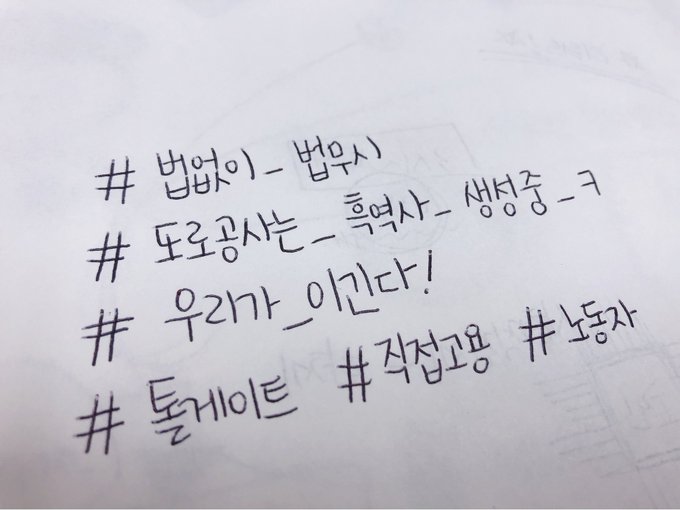 # 법없이_ 법무시
# 도로공사는_ 흑역사_ 생성중_ㅋ
# 우리가_이긴다!
# 톨게이트 #직접고용 #노동자